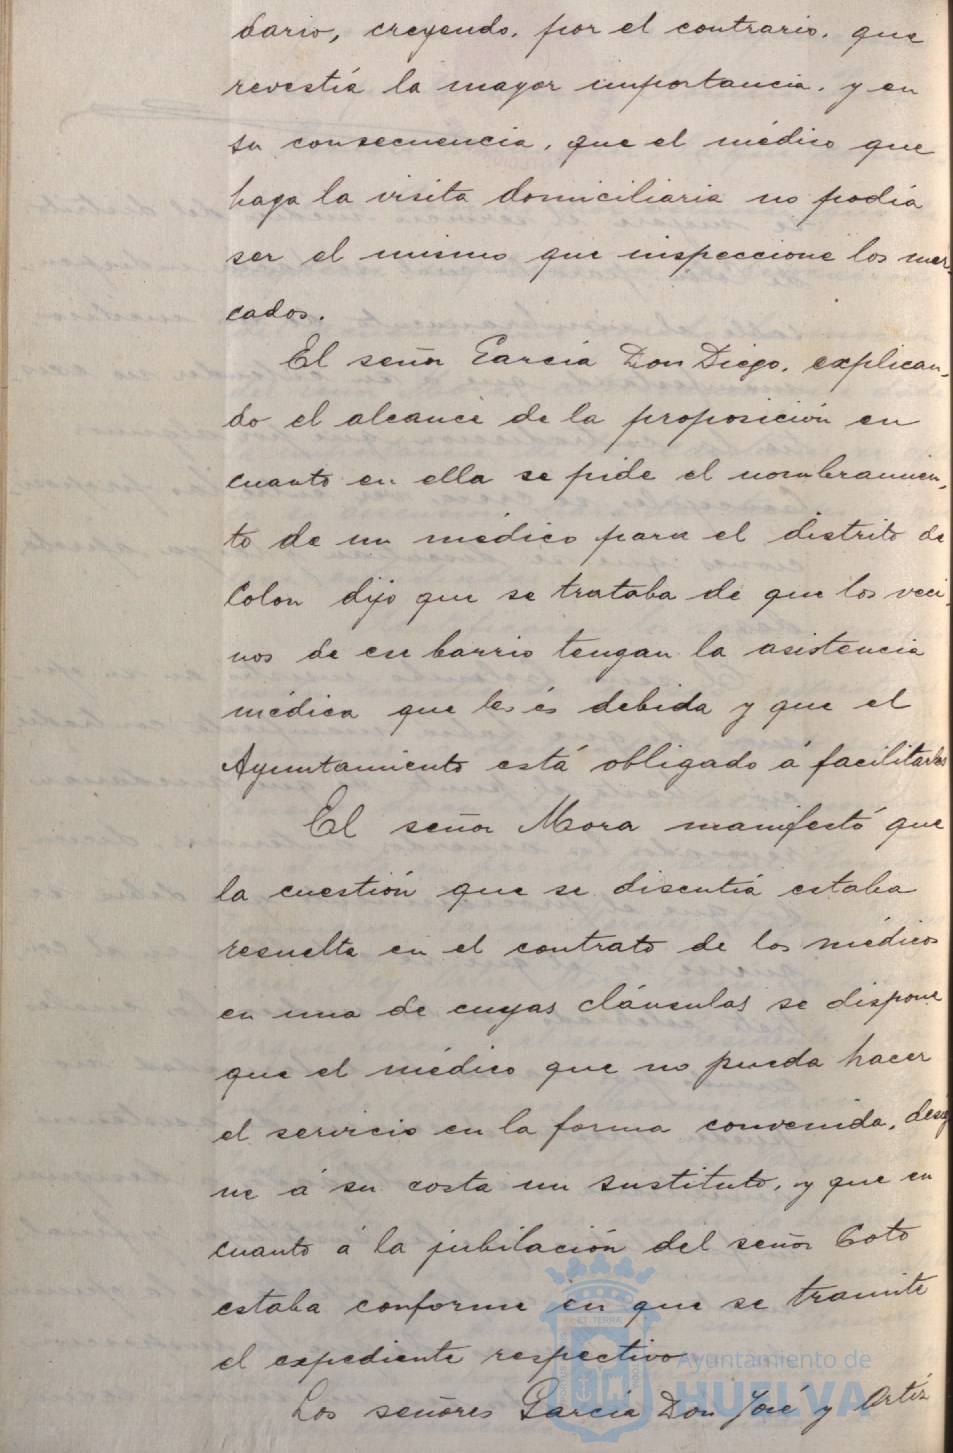 dario, creyendo, por el contrario, que
revestía la mayor importancia, y en
su consecuencia, que el médico que
haga la visita domiciliaria no podía
ser el mismo que inspeccione los mer-
cados.
El señor García Don Diego, explican-
do el alcance de la proposición en
cuanto en ella se pide el nombramien-
to de un médico para el distrito de
Colon dijo que se trataba de que los veci-
nos de ese barrio tengan la asistencia
médica que les és debida y que el
Ayuntamiento está obligado á facilitarles
El señor Mora manifestó que
la cuestión que se discutía estaba
resuelta en el contrato de los médicos
en una de cuyas cláusulas se dispone
que el médico que no pueda hacer
el servicio en la forma convenida, desig
ne á su costa un sustituto, y que en
cuanto á la jubilación del señor Coto
estaba conforme en que se tramite
el expediente respectivo
Los señores García Don José y Ortiz
Ayuntamiento de
HUELVA